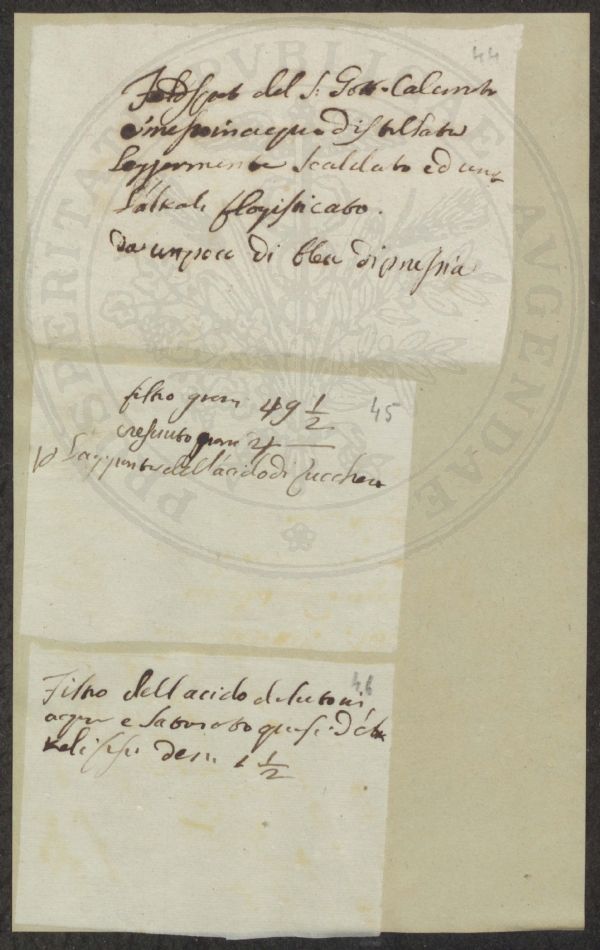 44
Feldspat del S: Gott. Calcinato
e messo in acqua distillata
leggermente scaldato ed un
l'alkali flogisticato.
da un poco di bleu di prussia
45
filtro grani 49 1/2
cresciuto grani 4
Laggiunta dell'acido di Zucchero
46
Filtro dell acido diluto in
acqua e saturato quasi d'al
kali
1 1/2
PROSPERITATI PVBLICAE AVGENDAE